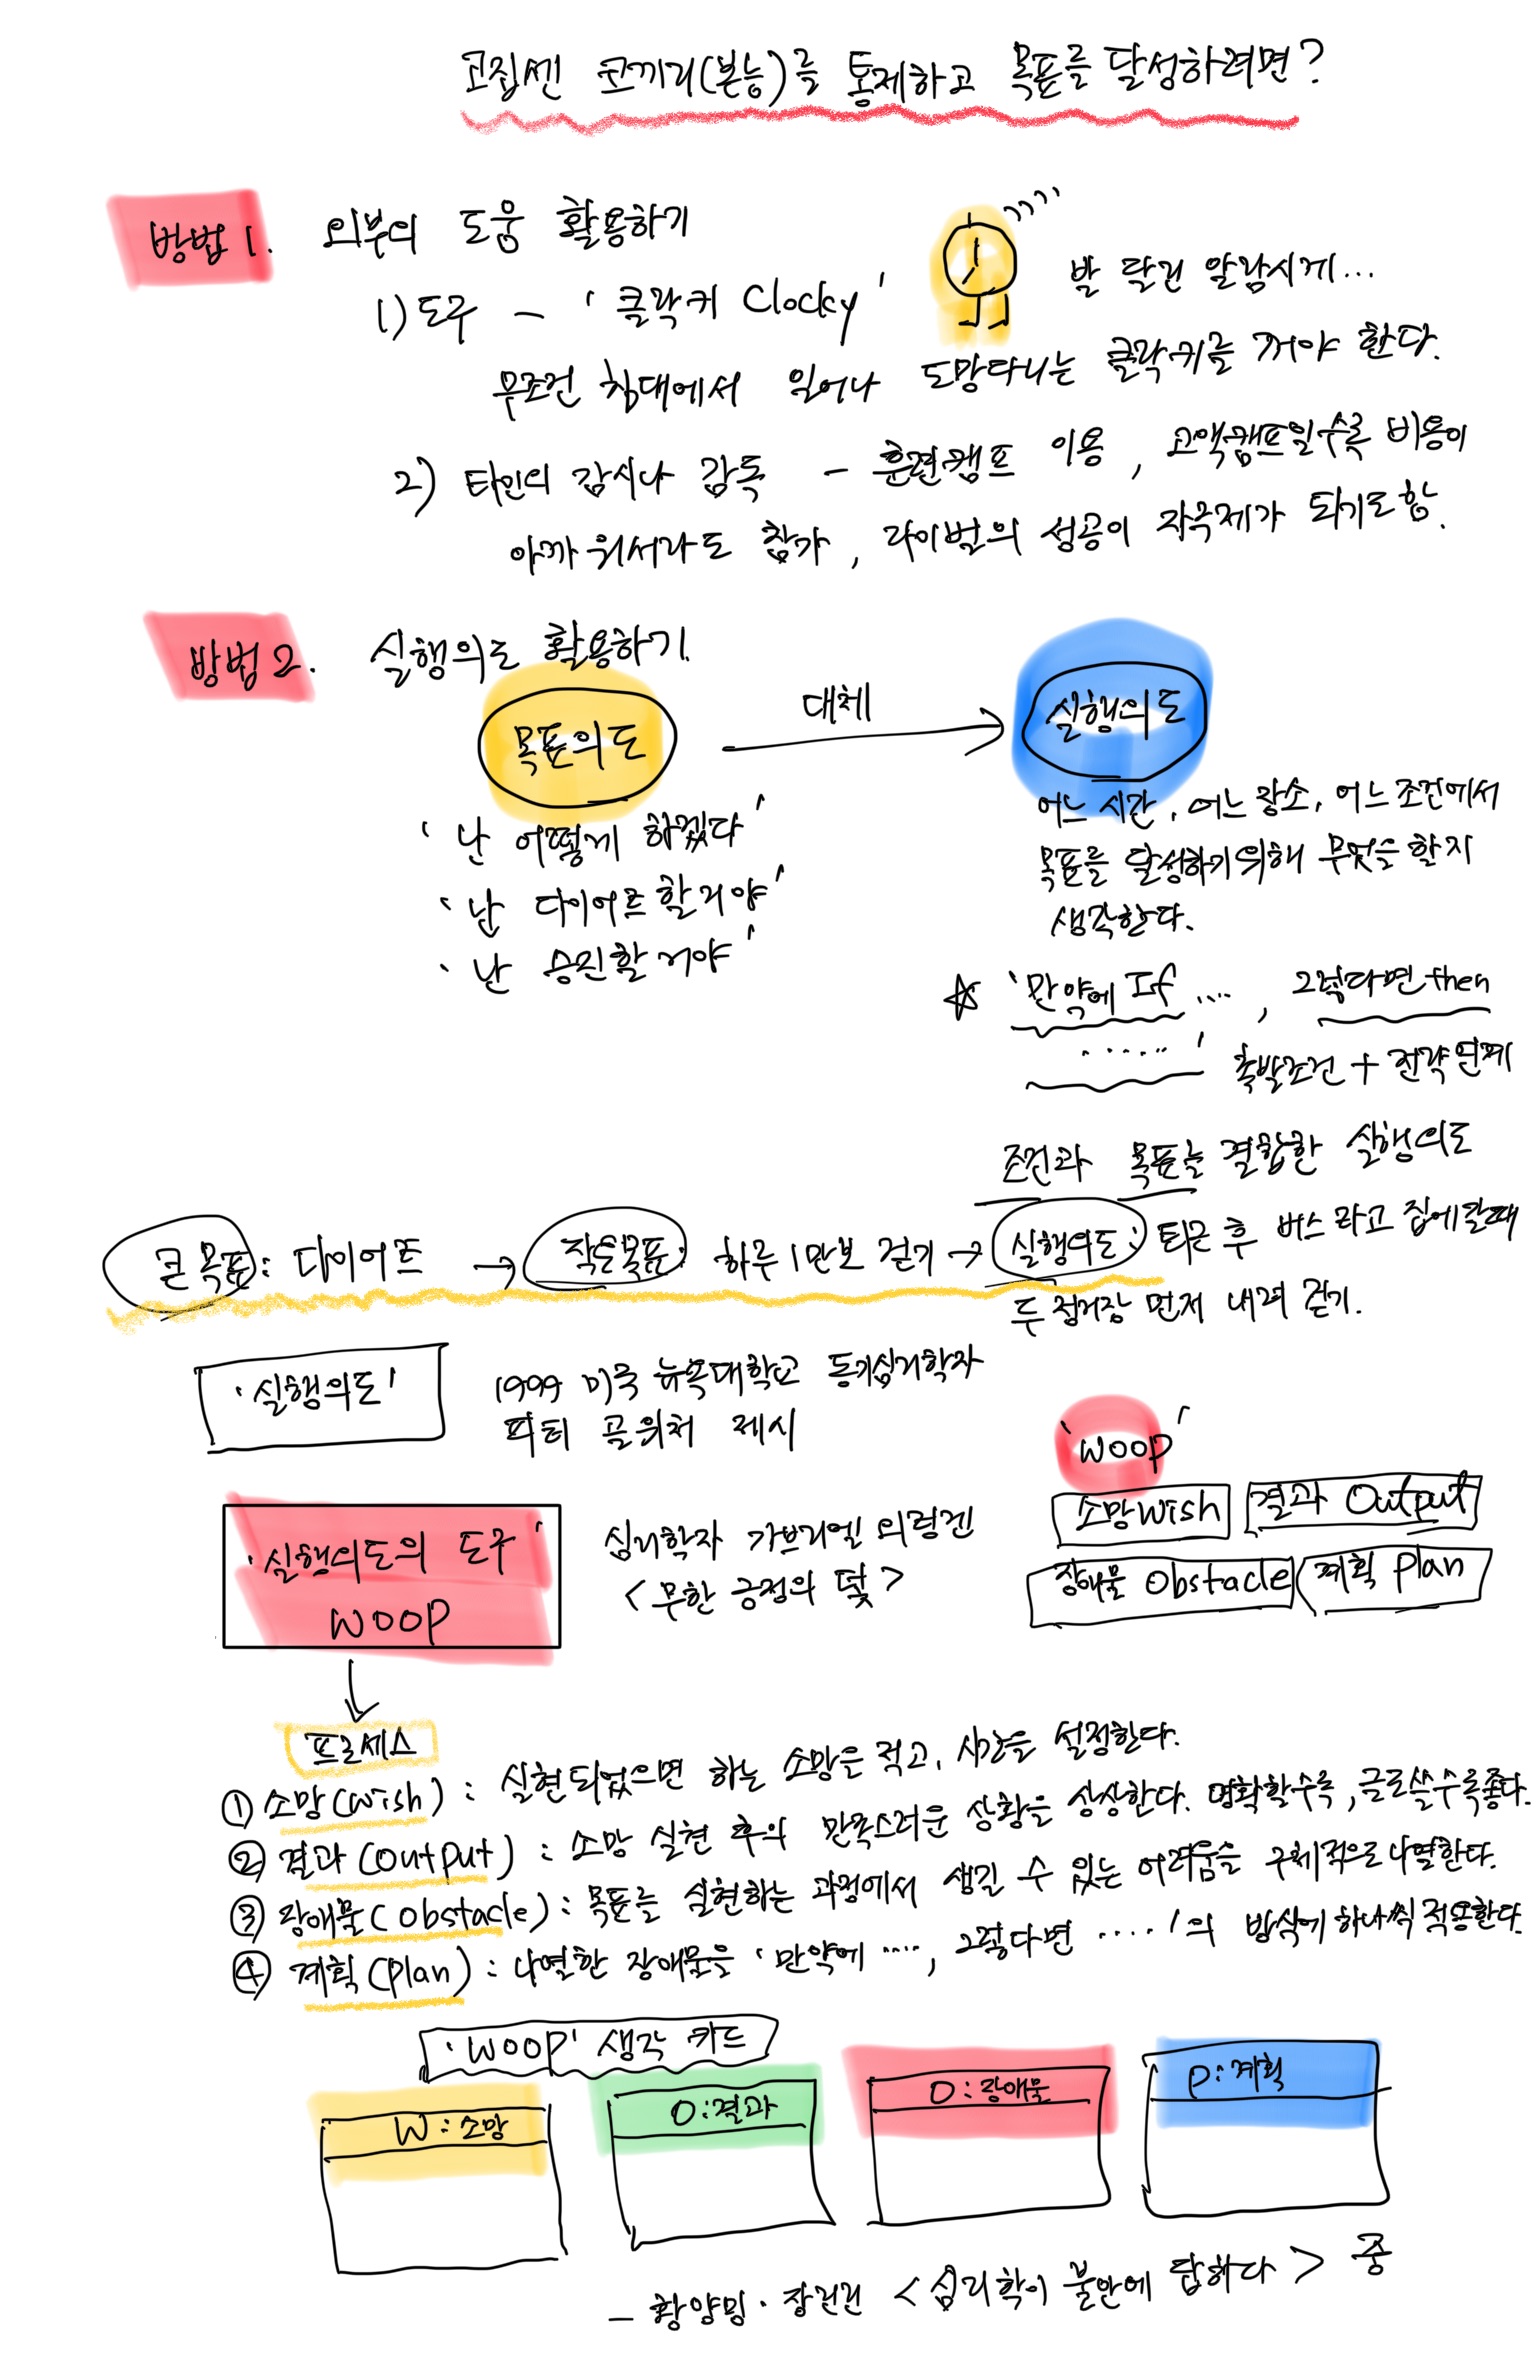 고집센 코끼리(본능)를 통제하고 목표를 달성하려면?
방법 1. 외부의 도움 활용하기
1) 도구 - '클락키 Clocky' 발 달린 알람시계...
무조건 침대에서 일어나 도망다니는 클락키를 꺼야 한다.
2) 타인의 감시나 감독 - 훈련캠프 이용, 고액캠프일수록 비용이
아까워서라도 참가, 라이벌의 성공이 자극제가 되기도 함.
방법 2. 실행의도 활용하기
목표의도 대체 실행의도
'난 어떻게 하겠다'
'난 다이어트 할거야'
'난 승진할거야'
어느 시간, 어느 장소, 어느 조건에서
목표를 달성하기 위해 무엇을 할지
생각한다.
☆ '만약에 If ...., 그렇다면 then
......' 촉발조건 + 전략 단계
조건과 목표를 결합한 실행의도
큰 목표: 다이어트 → 작은목표: 하루 1만보 걷기 → 실행의도: 퇴근 후 버스 타고 집에 갈때
두 정거장 먼저 내려 걷기.
'실행의도' 1999 미국 뉴욕대학교 동기심리학자
피터 골위처 제시
'실행의도의 도구'
WOOP
심리학자 가브리엘 외팅겐
<무한 긍정의 덫>
'WOOP'
소망 Wish 결과 Output
장애물 Obstacle 계획 Plan
프로세스
① 소망(Wish) : 실현되었으면 하는 소망을 적고, 시간을 설정한다.
② 결과(Output) : 소망 실현 후의 만족스러운 상황을 상상한다. 명확할수록, 글로 쓸수록 좋다.
③ 장애물(Obstacle) : 목표를 실현하는 과정에서 생길 수 있는 어려움을 구체적으로 나열한다.
④ 계획(Plan) : 나열한 장애물을 '만약에 ...., 그렇다면 ....'의 방식에 하나씩 적용한다.
'WOOP' 생각 카드
W : 소망 O : 결과 O : 장애물 P : 계획
- 황양밍·장린린 <심리학이 불안에 답하다> 중